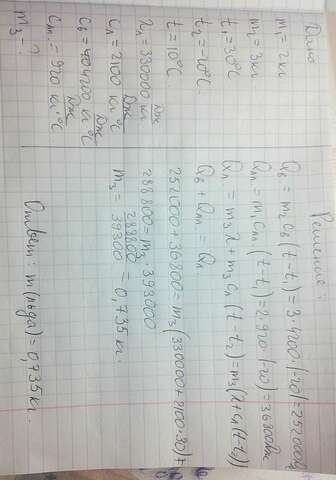 Дано
m₁ = 2 кг
m₂ = 3 кг
t₁ = 30°C
t₂ = -40°C
t = 10°C
λл = 330000 Дж/кг
cл = 2100 Дж/кг °C
cв = 4200 Дж/кг °C
cал. = 920 Дж/кг °C
m₃ - ?
Решение
Qв = m₂ cв (t - t₁) = 3 · 4200 · (-20) = 252000Дж
Qал. = m₁ cал. (t - t₁) = 2 · 920 · (-20) = 36800Дж
Qл = m₃ λ + m₃ cл (t - t₂) = m₃ (λ + cл (t - t₂))
Qв + Qал. = Qл
252000 + 36800 = m₃ (330000 + 2100 · 30)
288800 = m₃ · 393000
m₃ = 288800/39300 = 0,735 кг.
Ответ: m (льда) = 0,735 кг.